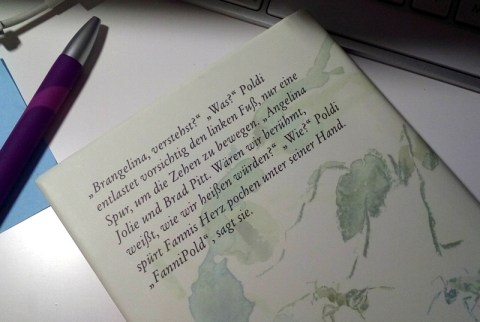 „Brangelina, verstehst?“ „Was?“ Poldi
entlastet vorsichtig den linken Fuß, nur eine
Spur, um die Zehen zu bewegen. „Angelina
Jolie und Brad Pitt. Wären wir berühmt,
weißt, wie wir heißen würden?“ „Wie?“ Poldi
spürt Fannis Herz pochen unter seiner Hand.
„FanniPold“, sagt sie.